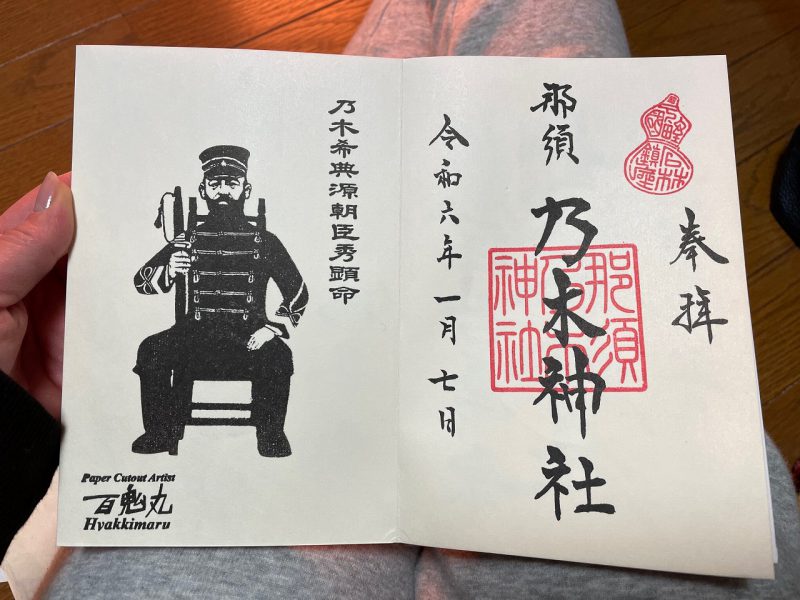 奉拝
石林
鎮座
那須
乃木神社
那須
乃木
神社
令和六年 一月 七日
乃木希典源朝臣秀顕命
Paper Cutout Artist
百鬼丸
Hyakkimaru